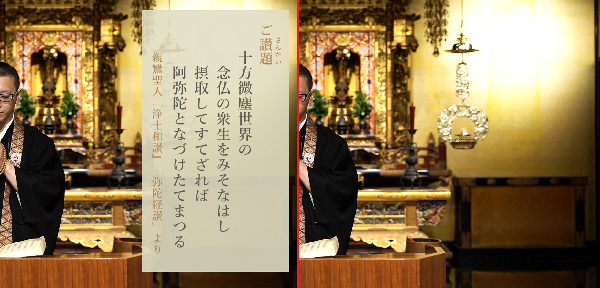 ご讃題
さんだい
十方微塵世界の
念仏の衆生をみそなはし
摂取してすてざれば
阿弥陀となづけたてまつる
親鸞聖人『浄土和讃』「弥陀経讃」より